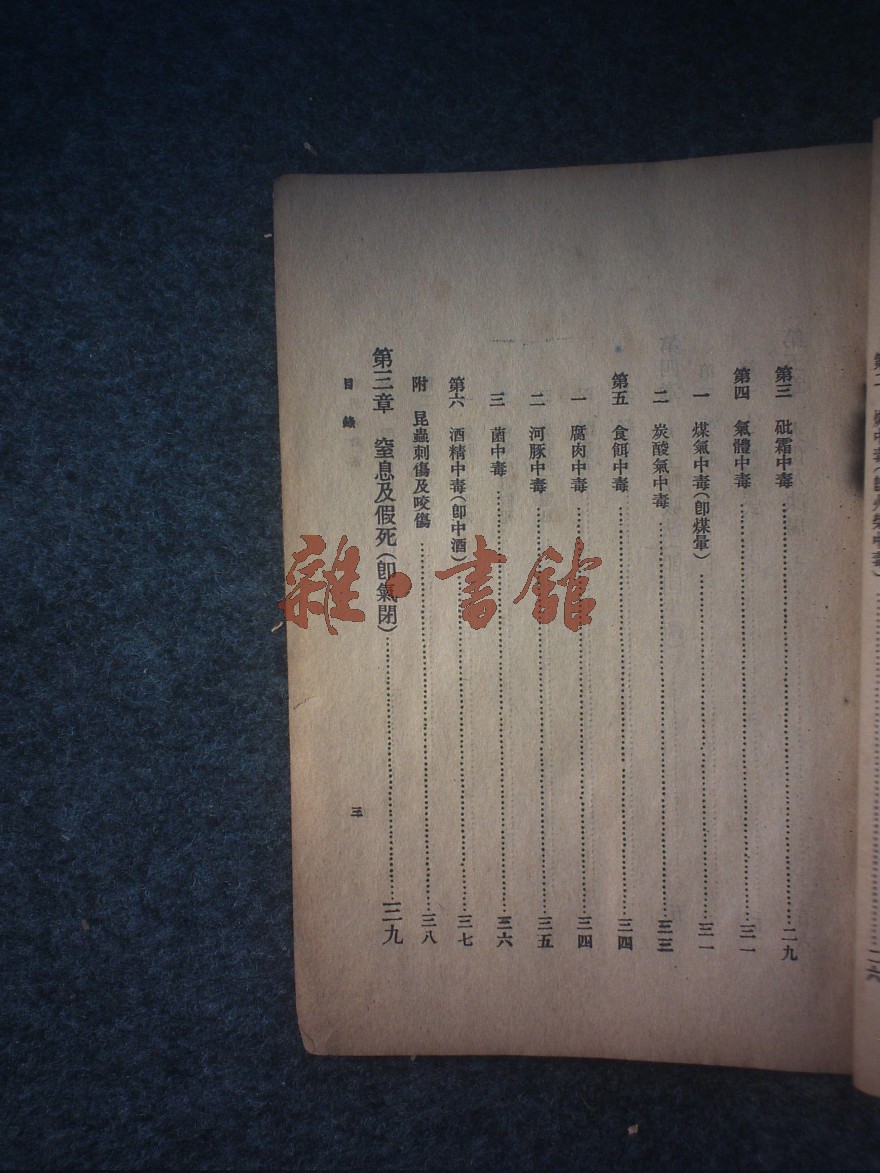 第三　砒霜中毒……二九
第四　氣體中毒……三一
一　煤氣中毒(卽煤暈)……三一
二　炭酸氣中毒……三三
第五　食餌中毒……三四
一　腐肉中毒……三四
二　河豚中毒……三五
三　菌中毒……三六
第六　酒精中毒(卽中酒)……三七
附　昆蟲刺傷及咬傷……三八
第三章　窒息及假死(卽氣閉)……三九
目錄　三
雜·書館